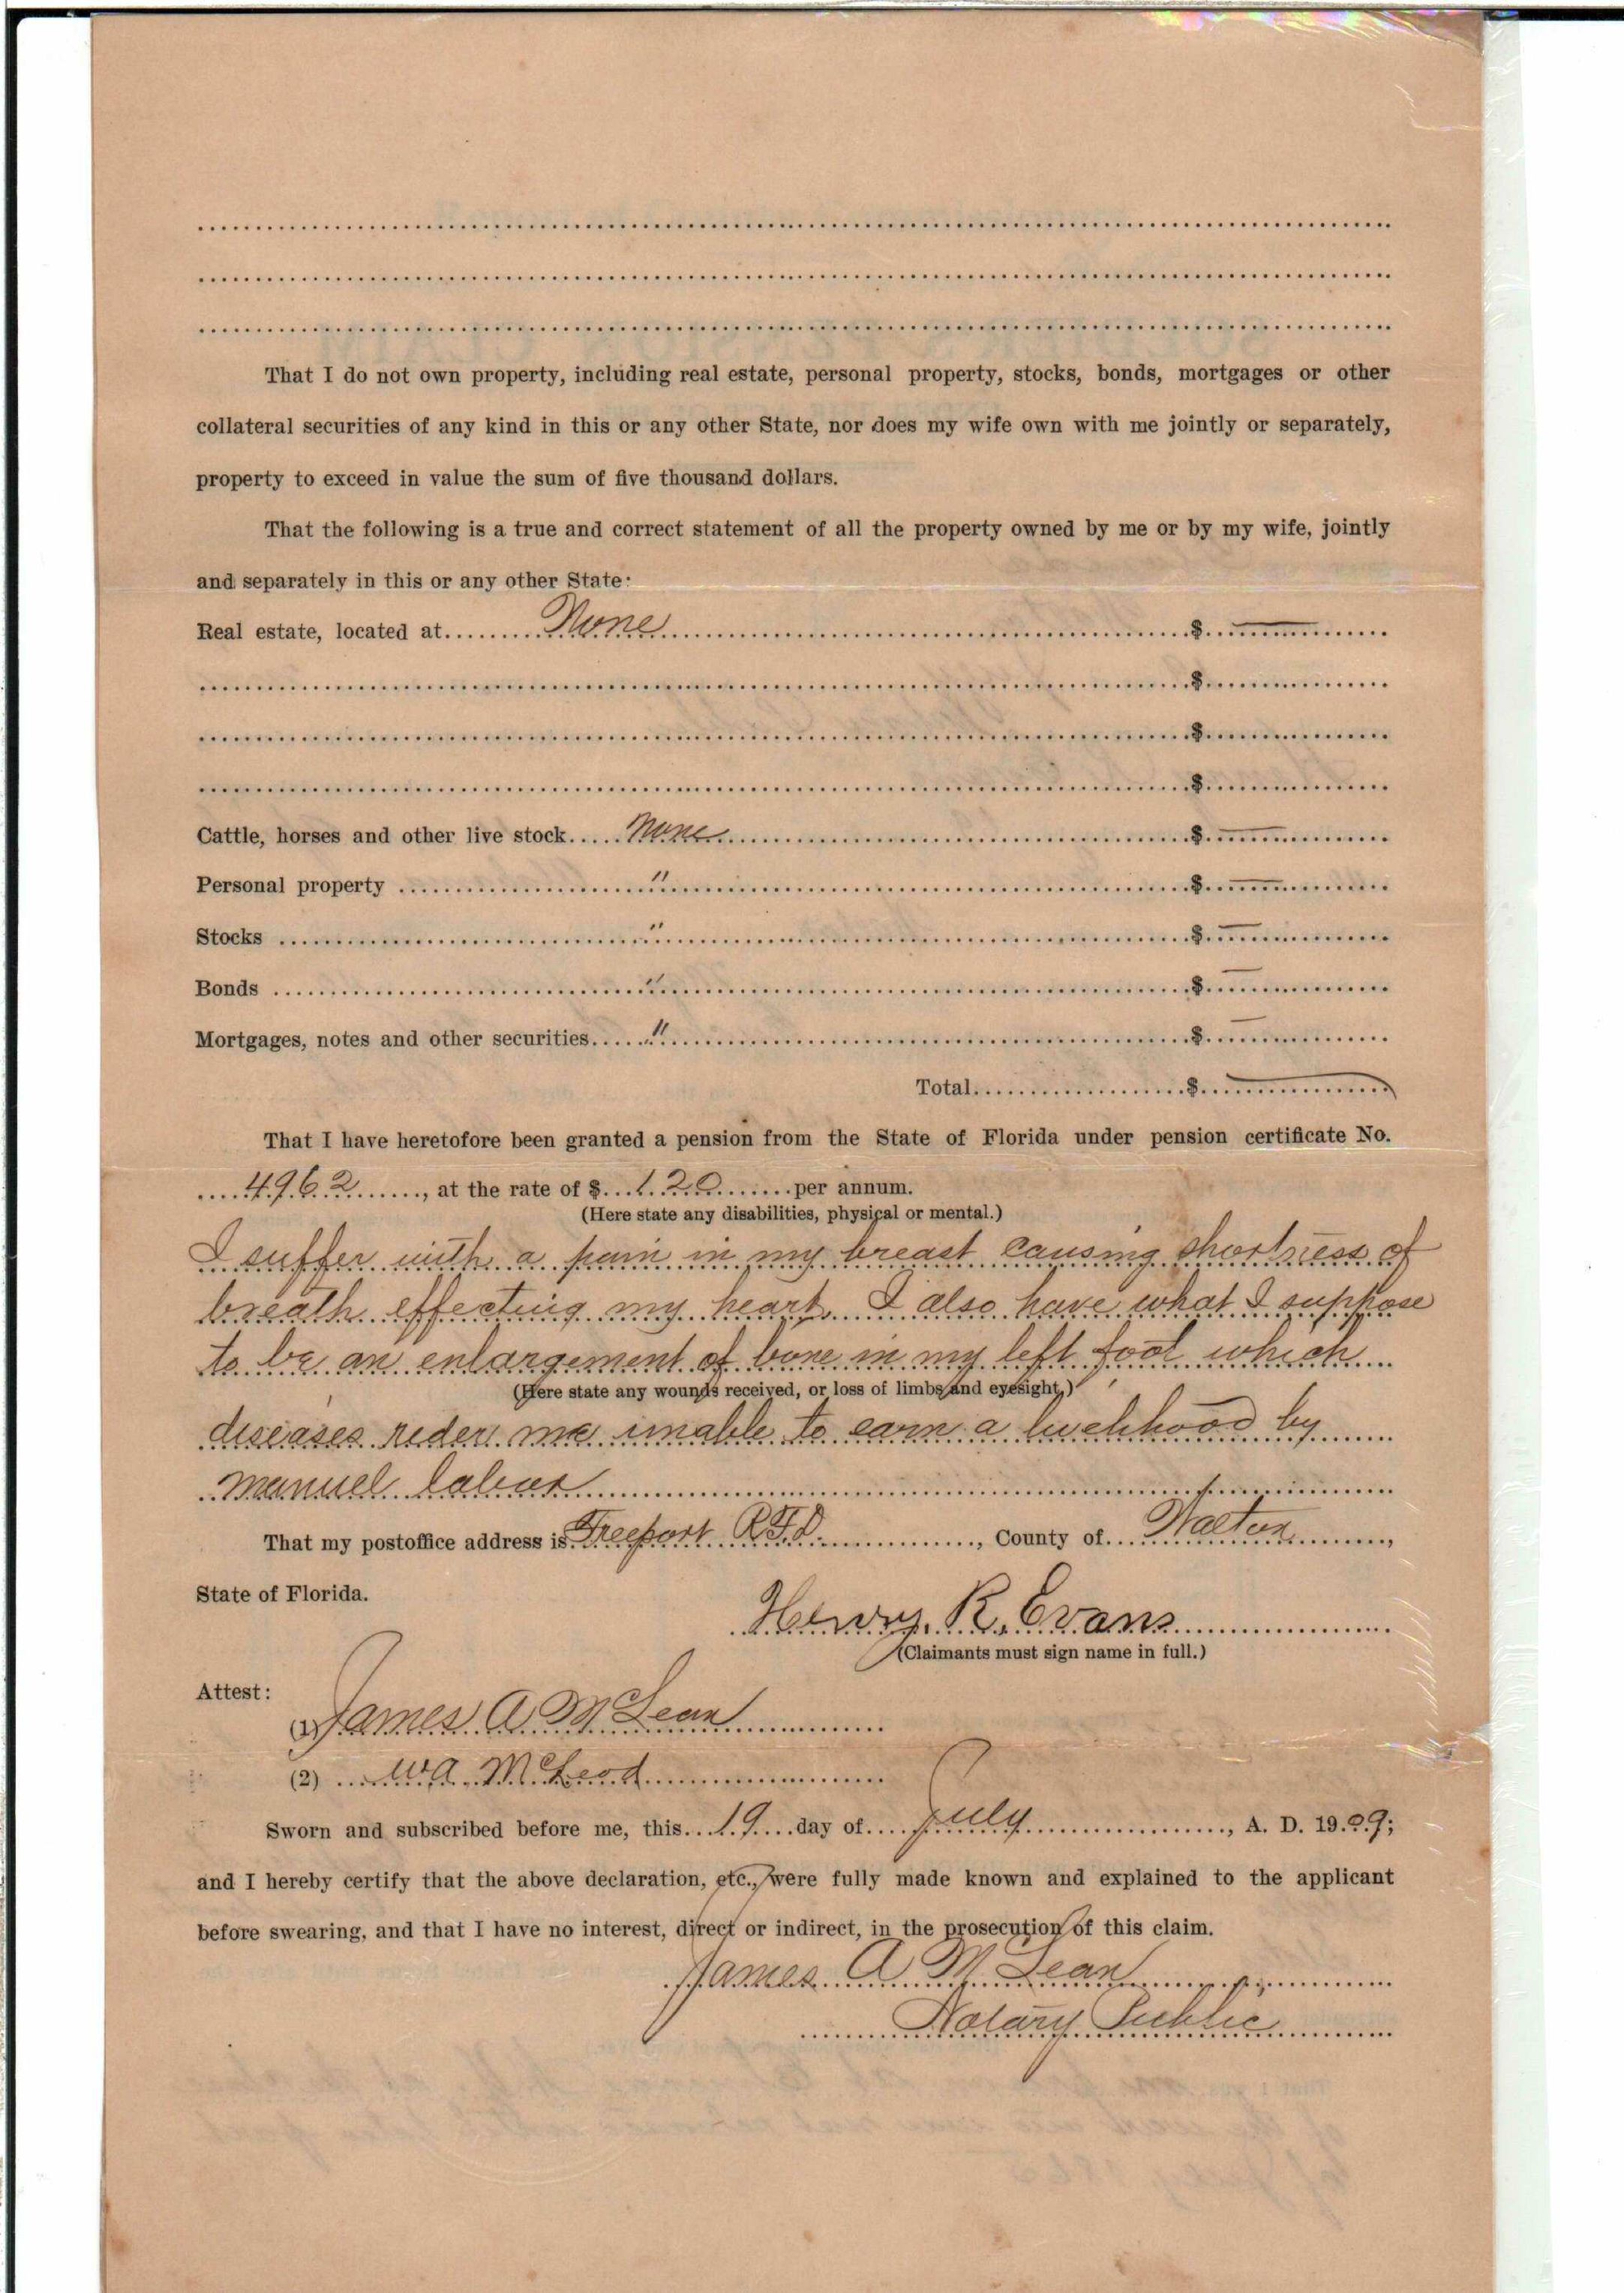 That I do not own property, including real estate, personal property, stocks, bonds, mortgages or other
collateral securities of any kind in this or any other State, nor does my wife own with me jointly or separately,
property to exceed in value the sum of five thousand dollars.
That the following is a true and correct statement of all the property owned by me or by my wife, jointly
and separately in this or any other State:
Real estate, located at None $
$
$
$
Cattle, horses and other live stock None $
Personal property " $
Stocks " $
Bonds " $
Mortgages, notes and other securities " $
Total $
That I have heretofore been granted a pension from the State of Florida under pension certificate No.
4962, at the rate of $ 120 per annum.
(Here state any disabilities, physical or mental.)
I suffer with a pain in my breast causing shortness of
breath effecting my heart. I also have what I suppose
to be an enlargement of bone in my left foot which
(Here state any wounds received, or loss of limbs and eyesight.)
diseases reder me unable to earn a livelihood by
manuel labor
That my postoffice address is Freeport R.F.D., County of Walton,
State of Florida.
Henry. R. Evans
(Claimants must sign name in full.)
Attest:
(1) James A McLean
(2) W A McLeod
Sworn and subscribed before me, this 19 day of July, A. D. 1909;
and I hereby certify that the above declaration, etc., were fully made known and explained to the applicant
before swearing, and that I have no interest, direct or indirect, in the prosecution of this claim.
James A McLean
Notary Public